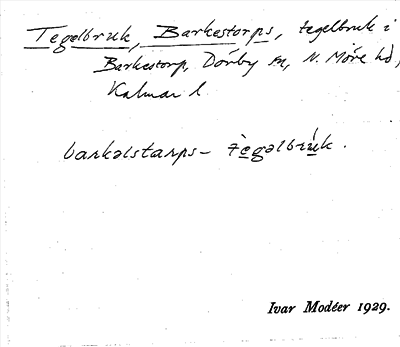 Tegelbruk, Barkestorps, tegelbruk i
Barkestorp, Dörby sn, N. Möre hd,
Kalmar l.
barkəlstarps– tègəlbrúk.
Ivar Modéer 1929.